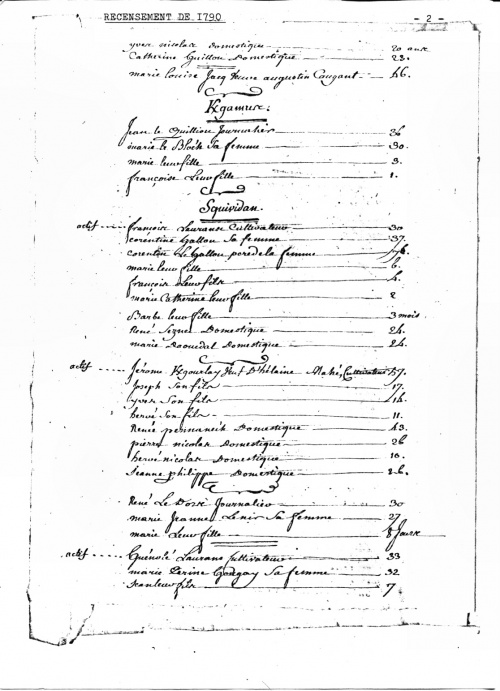 RECENSEMENT DE I790 - 2 -
yves nicolas Domestique 20 ans
Catherine Guillou Domestique 28.
marie Louise Jacq veuve augustin Caugant 46.
Kgamus:
Jean le Quillion Journalier 36
marie le Block Sa femme 30.
marie leur fille 3.
françoise Leur fille 1.
Squividan.
actif françois Laurans Cultivateur 30
corentine gallou Sa femme 37.
corentin Le gallou pere de la femme
marie leur fille 6.
françois leur fils 4.
marie Catherine leur fille 2
Barbe leur fille 3 mois
René Domestique 24.
marie Daouedal Domestique 24.
actif Jérome Kgourlay Cultivateur 57.
Joseph Son fils 17.
yves Son fils 14.
hervé Son fils 11.
Renée pennaneich Domestique 43.
pierre nicolas Domestique 26
hervé nicolas Domestique 10.
Jeanne philippe Domestique 26.
René Le Dossé Journalier 30
marie Jeanne Lenir Sa femme 27
marie Leur fille 8 Jours
actif Guénolé Laurans Cultivateur 33
marie perine Sa femme 32
Jean leur fils 7